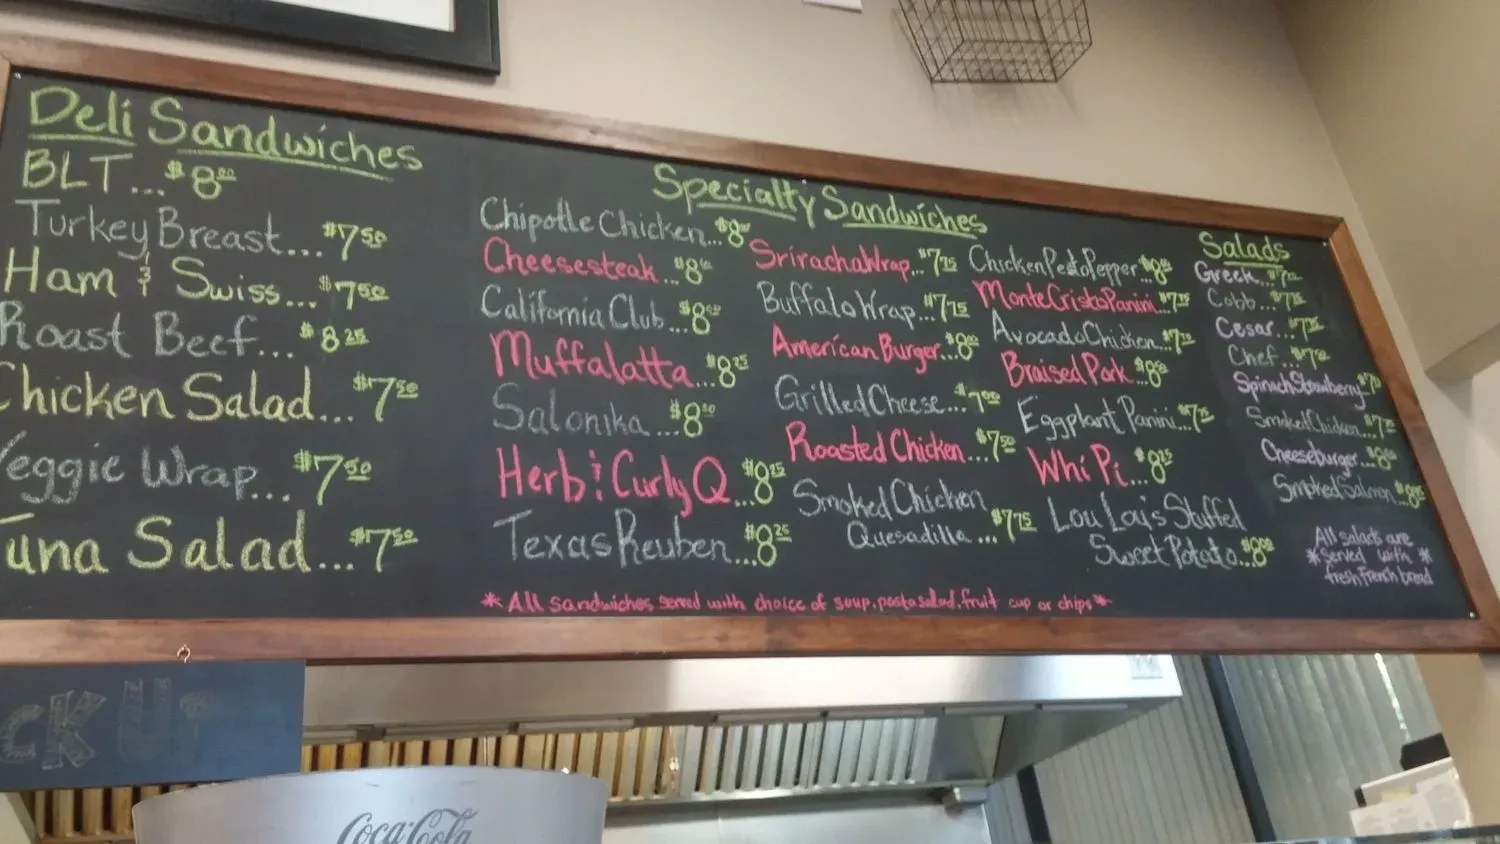 Deli Sandwiches
BLT... $8.00
Turkey Breast... $7.50
Ham & Swiss... $7.50
Roast Beef... $8.25
Chicken Salad... $7.50
Veggie Wrap... $7.50
Tuna Salad... $7.50
Specialty Sandwiches
Chipotle Chicken... $8
Cheesesteak... $8
California Club... $8
Muffalatta... $8.25
Salonika... $8
Herb & Curly Q... $8.25
Texas Reuben... $8.25
Sriracha Wrap... $7.75
Buffalo Wrap... $7.75
American Burger... $8.00
Grilled Cheese... $7.00
Roasted Chicken... $7.50
Smoked Chicken
Quesadilla... $7.75
Chicken Pesto Pepper $8
Monte Cristo Panini... $7.75
Avocado Chicken... $7.75
Braised Pork... $8
Eggplant Panini... $7.75
Whi Pi... $8.25
Lou Lou's Stuffed
Sweet Potato... $8.00
Salads
Greek... $7
Cobb... $7
Cesar... $7
Chef... $7
Spinach Strawberry $7
Smoked Chicken... $7
Cheeseburger... $8
Smoked Salmon... $8
All salads are
*served with *
fresh French bread
*All sandwiches served with choice of soup, pasta salad, fruit cup or chips*
CK
Coca-Cola